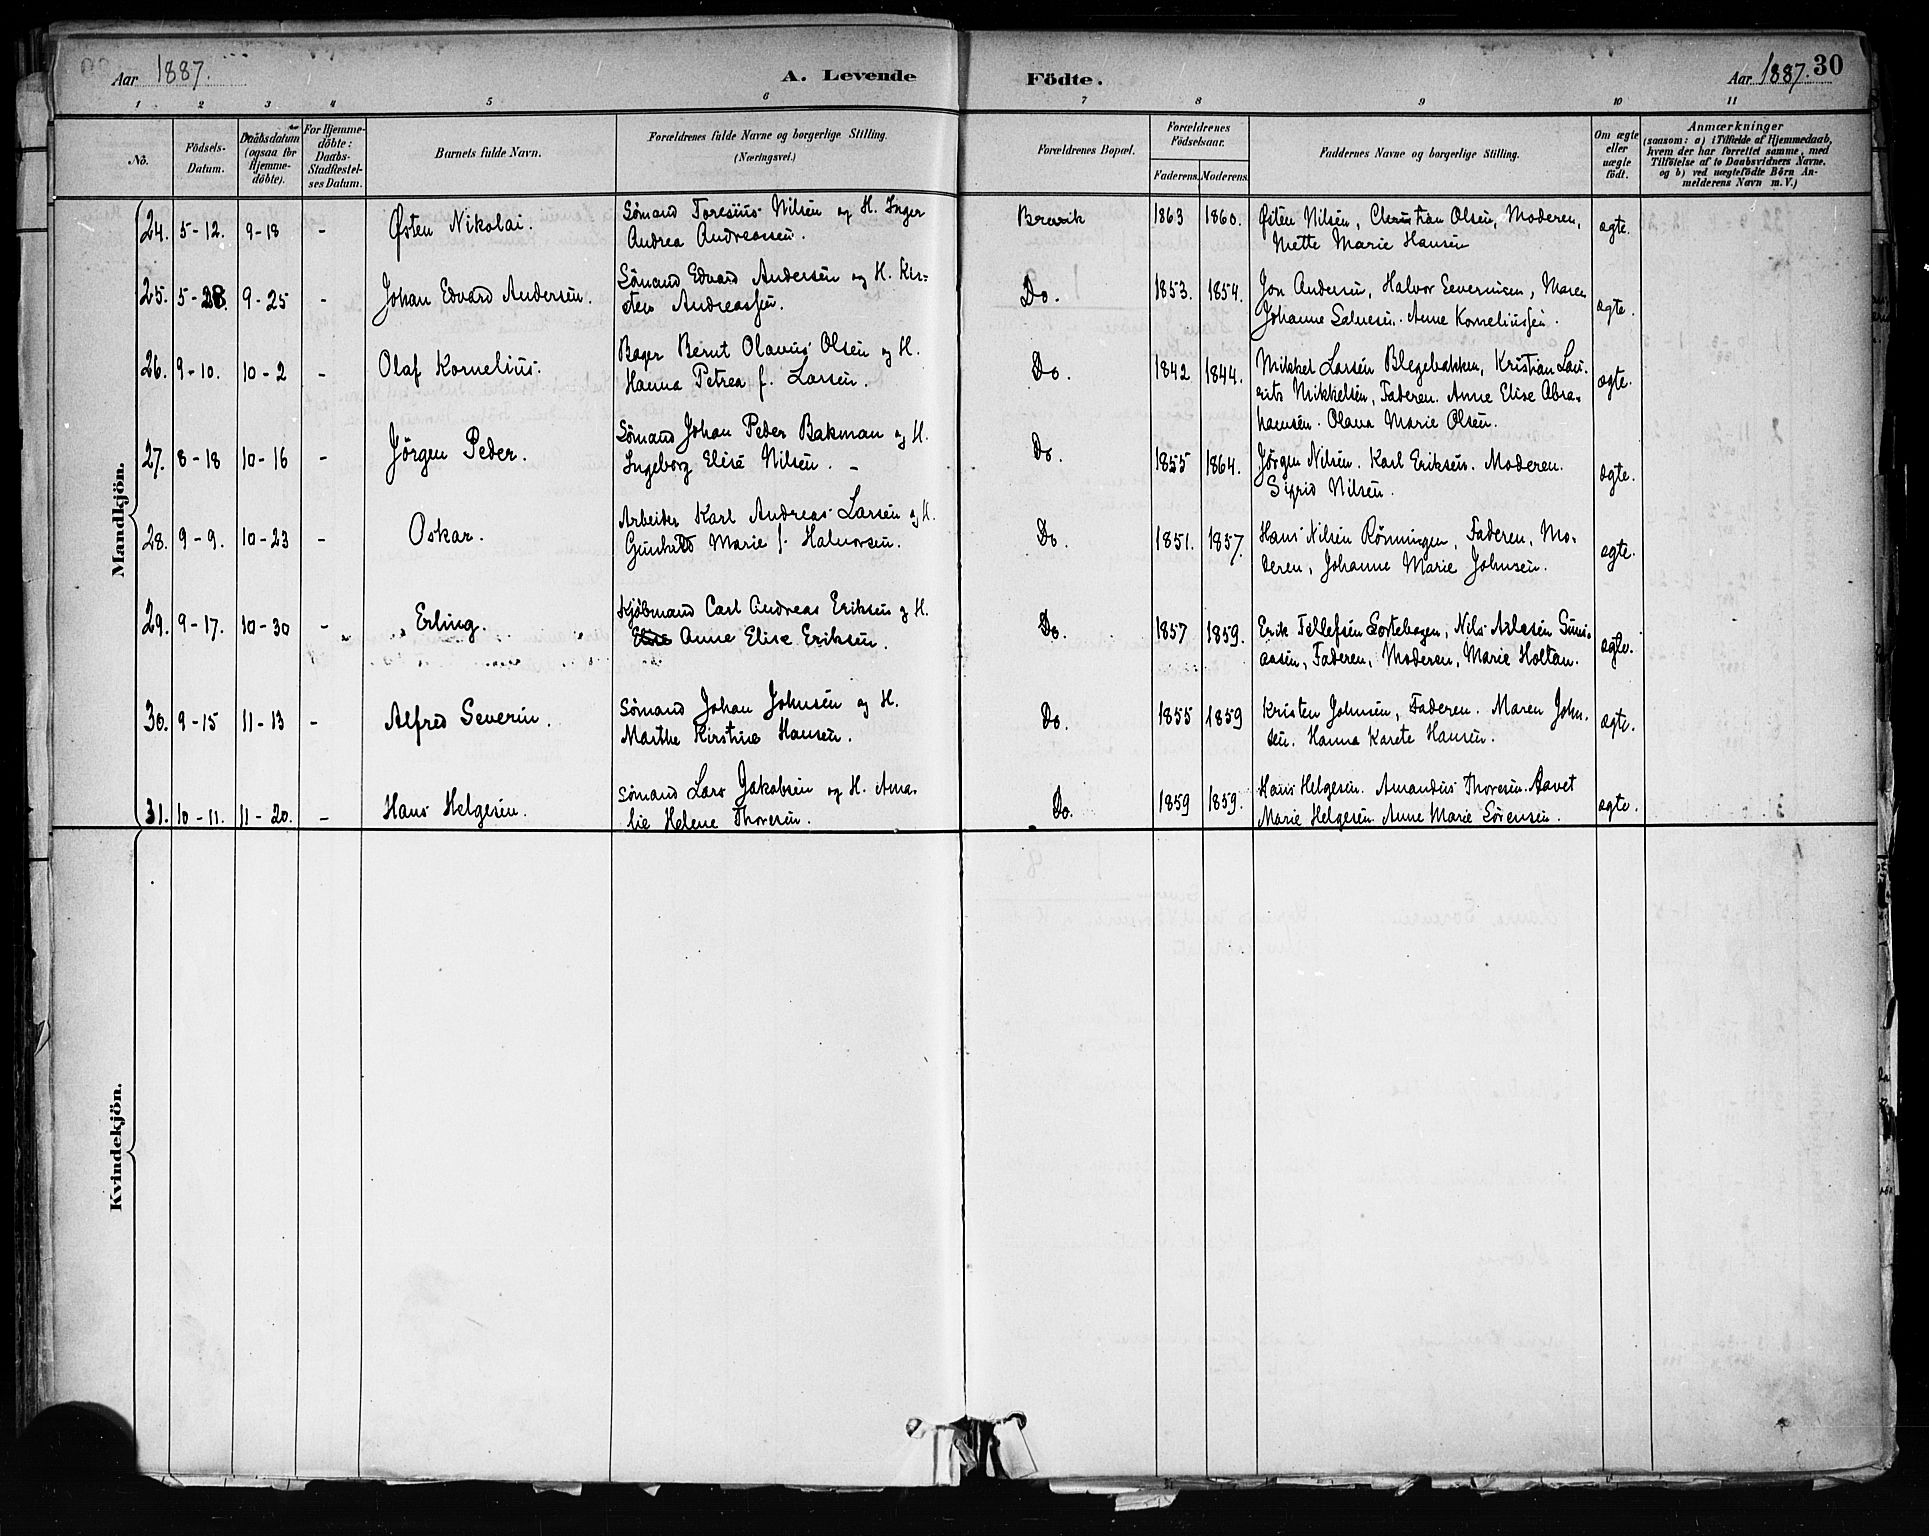 Aar 1887. A. Levende Födte. Aar 1887. 30
1 2 3 4 5 6 7 8 9 10 11
No.
Födsels-
Datum.
Daabsdatum
(ogsaa for
Hjemme-
döbte).
For Hjemme-
döbte:
Daabs-
Stadfæstel-
ses Datum.
Barnets fulde Navn.
Forældrenes fulde Navne og borgerlige Stilling.
(Næringsvei.)
Forældrenes Bopæl.
Forældrenes
Födselsaar.
Faderens. Moderens.
Faddernes Navne og borgerlige Stilling.
Om ægte
eller
uægte
födt.
Anmærkninger
(saasom: a) i Tilfælde af Hjemmedaab,
hvem der har forrettet samme, med
Tilföielse af to Daabsvidners Navne,
og b) ved uægtefödte Börn An-
melderens Navn m. V.)
Mandkjön.
24. 5-12. 9-18 - Østen Nikolai.
Sømand Toresius Nilsen og H. Inger
Andrea Andreassen.
Brevik 1863 1860.
Østen Nilsen, Christian Olsen, Moderen,
Mette Marie Hansen
ægte.
25. 5-28. 9-25 - Johan Edvard Andersen.
Sømand Edvard Andersen og H. Kir-
sten Andreassen.
Do. 1853. 1854.
Jon Andersen, Halvor Severinsen, Maren
Johanne Salvesen. Anne Korneliussen.
ægte.
26. 9-10. 10-2 - Olaf Kornelius.
Bager Bernt Olavus Olsen og H.
Hanna Petrea f. Larsen.
Do. 1842 1844.
Mikkel Larsen Blegebakken, Kristian Lau-
rits Mikkelsen, Faderen. Anne Elise Abra-
hamsen. Olava Marie Olsen.
ægte.
27. 8-18 10-16 - Jörgen Peder.
Sømand Johan Peder Bakman og H.
Ingeborg Elise Nilsen. -
Do. 1855 1864.
Jørgen Nilsen. Karl Eriksen. Moderen.
Sigrid Nilsen.
ægte.
28. 9-9. 10-23 - Oskar.
Arbeider Karl Andreas Larsen og H.
Gunhild Marie f. Halvorsen.
Do. 1851. 1857.
Hans Nilsen Rønningen, Faderen, Mo-
deren, Johanne Marie Johnsen.
ægte.
29. 9-17. 10-30 - Erling.
Kjøbmand Carl Andreas Eriksen og H.
Anne Elise Eriksen.
Do. 1857 1859.
Erik Tellefsen Sortebogen, Nils Aslesen
Faderen, Moderen, Marie Holtan.
ægte.
30. 9-15 11-13 - Alfred Severin.
Sømand Johan Johnsen og H.
Marthe Kirstine Hansen.
Do. 1855 1859
Kristen Johnsen, Faderen. Maren John-
sen. Hanna Karete Hansen.
ægte.
31. 10-11. 11-20. - Hans Helgesen.
Sømand Lars Jakobsen og H. Ama-
lie Helene Thoresen.
Do. 1859 1859.
Hans Helgesen. Amandus Thoresen. Aavet
Marie Helgesen. Anne Marie Sörensen.
ægte.
Kvindekjön.